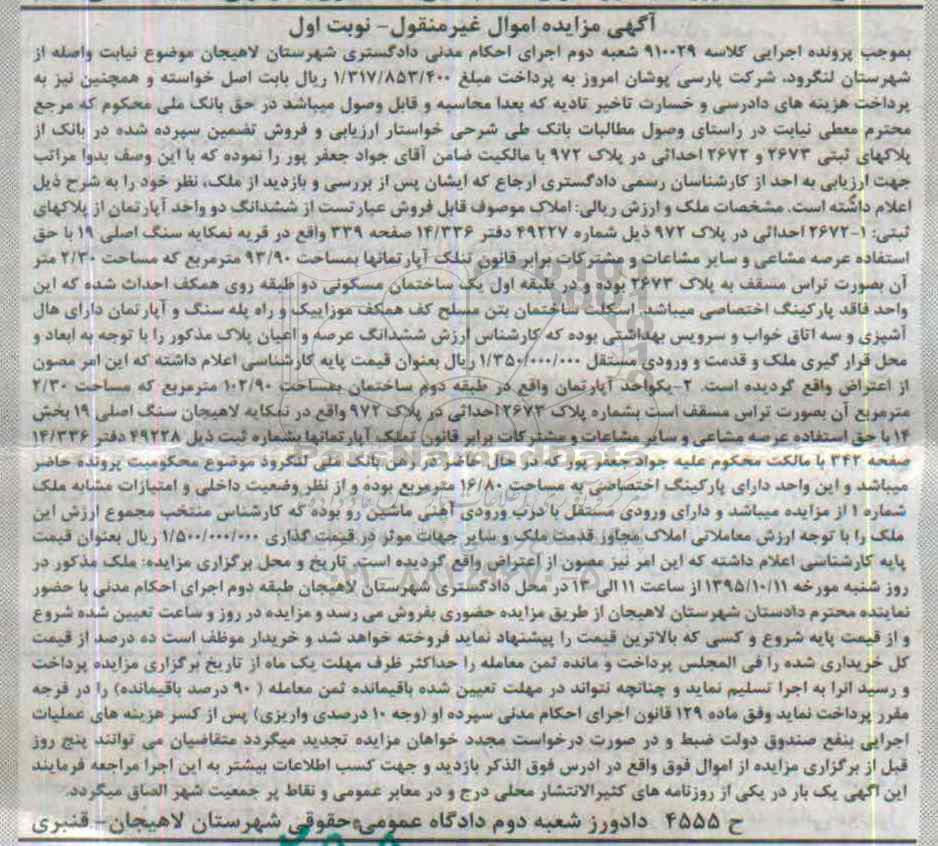 آگهی مزایده اموال غیرمنقول- نوبت اول
بموجب پرونده اجرایی کلاسه ۹۱۰۰۲۹ شعبه دوم اجرای احکام مدنی دادگستری شهرستان لاهیجان موضوع نیابت واصله از
شهرستان لنگرود، شرکت پارسی پوشان امروز به پرداخت مبلغ ۱/۳۱۷/۸۵۳/۴۰۰ ریال بابت اصل خواسته و همچنین نیز به
پرداخت هزینه های دادرسی و خسارت تاخیر تادیه که بعدا محاسبه و قابل وصول میباشد در حق بانک ملی محکوم که مرجع
محترم معطی نیابت در راستای وصول مطالبات بانک طی شرحی خواستار ارزیابی و فروش تضمین سپرده شده در بانک از
پلاکهای ثبتی ۲۶۷۳ و ۲۶۷۲ احداثی در پلاک ۹۷۲ با مالکیت ضامن آقای جواد جعفر پور را نموده که با این وصف بدوا مراتب
جهت ارزیابی به احد از کارشناسان رسمی دادگستری ارجاع که ایشان پس از بررسی و بازدید از ملک، نظر خود را به شرح ذیل
اعلام داشته است. مشخصات ملک و ارزش ریالی: املاک موصوف قابل فروش عبارتست از ششدانگ دو واحد آپارتمان از پلاکهای
ثبتی: ۱-۲۶۷۲ احداثی در پلاک ۹۷۲ ذیل شماره ۴۹۲۲۷ دفتر ۱۴/۳۳۶ صفحه ۳۳۹ واقع در قریه نمکایه سنگ اصلی ۱۹ با حق
استفاده عرصه مشاعی و سایر مشاعات و مشترکات برابر قانون تملک آپارتمانها بمساحت ۹۳/۹۰ مترمربع که مساحت ۲/۳۰ متر
آن بصورت تراس مسقف به پلاک ۲۶۷۳ بوده و در طبقه اول یک ساختمان مسکونی دو طبقه روی همکف احداث شده که این
واحد فاقد پارکینگ اختصاصی میباشد. اسکلت ساختمان بتن مسلح کف همکف موزاییک و راه پله سنگ و آپارتمان دارای هال
آشپزی و سه اتاق خواب و سرویس بهداشتی بوده که کارشناس ارزش ششدانگ عرصه و اعیان پلاک مذکور را با توجه به ابعاد و
محل قرار گیری ملک و قدمت و ورودی مستقل ۱/۳۵۰/۰۰۰/۰۰۰ ریال بعنوان قیمت پایه کارشناسی اعلام داشته که این امر مصون
از اعتراض واقع گردیده است. ۲-یکواحد آپارتمان واقع در طبقه دوم ساختمان بمساحت ۱۰۲/۹۰ مترمربع که مساحت ۲/۳۰
مترمربع آن بصورت تراس مسقف است بشماره پلاک ۲۶۷۳ احداثی در پلاک ۹۷۲ واقع در نمکایه لاهیجان سنگ اصلی ۱۹ بخش
۱۴ با حق استفاده عرصه مشاعی و سایر مشاعات و مشترکات برابر قانون تملک آپارتمانها بشماره ثبت ذیل ۴۹۲۲۸ دفتر ۱۴/۳۳۶
صفحه ۳۴۲ با مالکت محکوم علیه جواد جعفر پور که در حال حاضر در رهن بانک ملی لنگرود موضوع محکومیت پرونده حاضر
میباشد و این واحد دارای پارکینگ اختصاصی به مساحت ۱۶/۸۰ مترمربع بوده و از نظر وضعیت داخلی و امتیازات مشابه ملک
شماره ۱ از مزایده میباشد و دارای ورودی مستقل با درب ورودی آهنی ماشین رو بوده که کارشناس منتخب مجموع ارزش این
ملک را با توجه ارزش معاملاتی املاک مجاور قدمت ملک و سایر جهات موثر در قیمت گذاری ۱/۵۰۰/۰۰۰/۰۰۰ ریال بعنوان قیمت
پایه کارشناسی اعلام داشته که این امر نیز مصون از اعتراض واقع گردیده است. تاریخ و محل برگزاری مزایده: ملک مذکور در
روز شنبه مورخه ۱۳۹۵/۱۰/۱۱ از ساعت ۱۱ الی ۱۳ در محل دادگستری شهرستان لاهیجان طبقه دوم اجرای احکام مدنی با حضور
نماینده محترم دادستان شهرستان لاهیجان از طریق مزایده حضوری بفروش می رسد و مزایده در روز و ساعت تعیین شده شروع
و از قیمت پایه شروع و کسی که بالاترین قیمت را پیشنهاد نماید فروخته خواهد شد و خریدار موظف است ده درصد از قیمت
کل خریداری شده را فی المجلس پرداخت و مانده ثمن معامله را حداکثر ظرف مهلت یک ماه از تاریخ برگزاری مزایده پرداخت
و رسید انرا به اجرا تسلیم نماید و چنانچه نتواند در مهلت تعیین شده باقیمانده ثمن معامله ( ۹۰ درصد باقیمانده) را در فرجه
مقرر پرداخت نماید وفق ماده ۱۲۹ قانون اجرای احکام مدنی سپرده او (وجه ۱۰ درصدی واریزی) پس از کسر هزینه های عملیات
اجرایی بنفع صندوق دولت ضبط و در صورت درخواست مجدد خواهان مزایده تجدید میگردد متقاضیان می توانند پنج روز
قبل از برگزاری مزایده از اموال فوق واقع در ادرس فوق الذکر بازدید و جهت کسب اطلاعات بیشتر به این اجرا مراجعه فرمایند
این آگهی یک بار در یکی از روزنامه های کثیرالانتشار محلی درج و در معابر عمومی و نقاط پر جمعیت شهر الصاق میگردد.
ح ۴۵۵۵ دادورز شعبه دوم دادگاه عمومی حقوقی شهرستان لاهیجان- قنبری